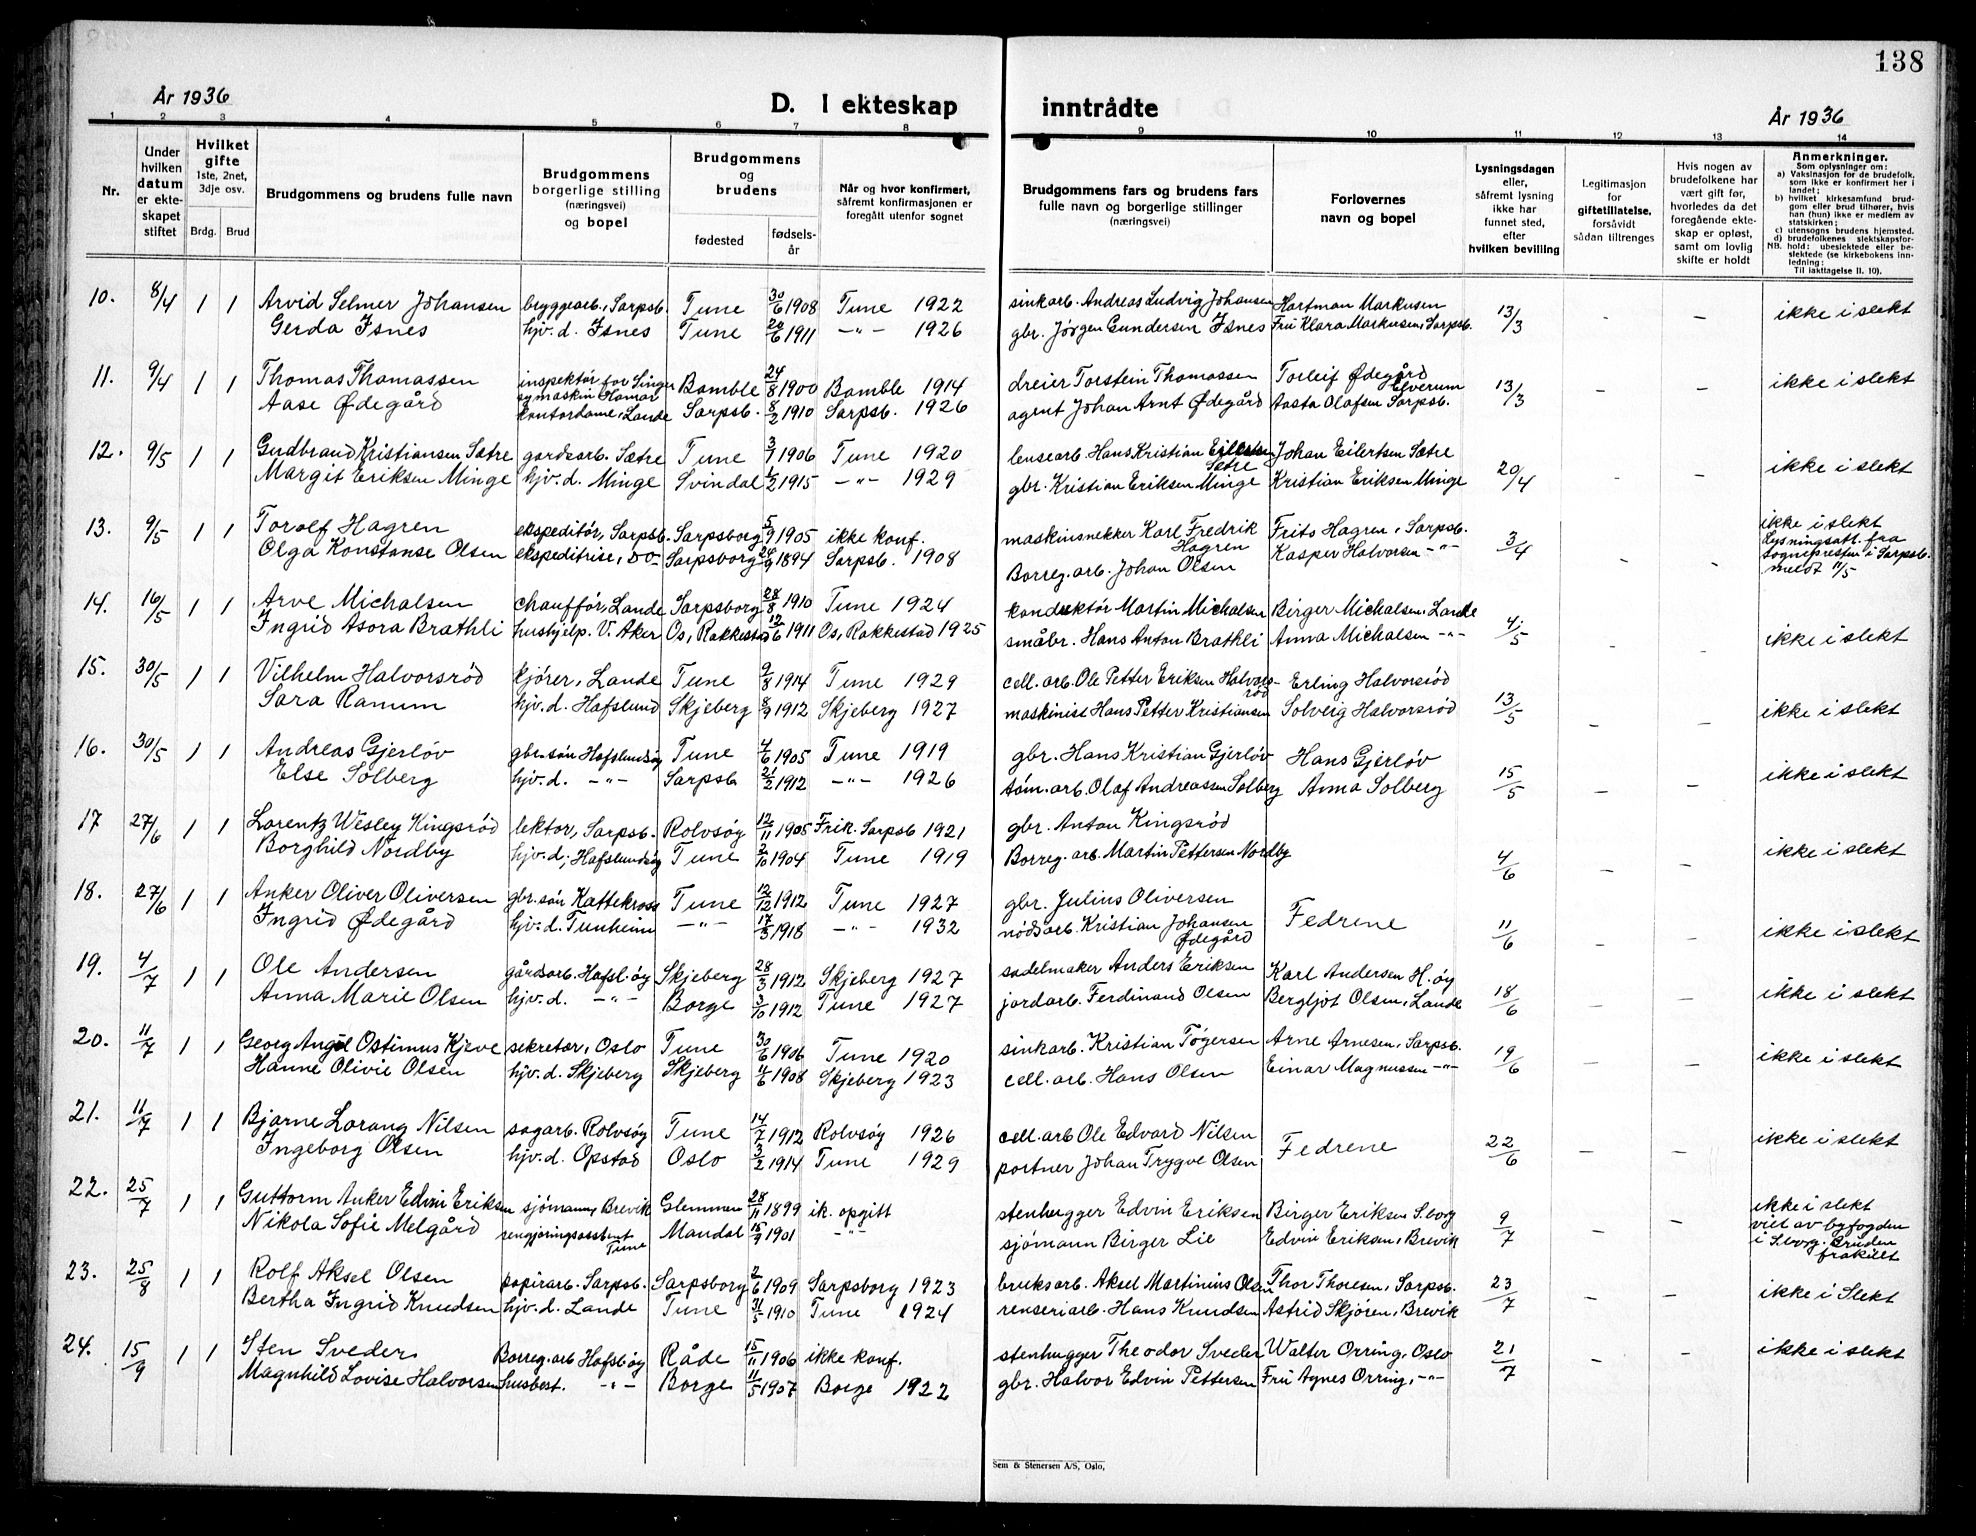 138
År 1936
D. I ekteskap inntrådte
År 1936
1 2 3 4 5 6 7 8 9 10 11 12 13 14
Nr.
Under hvilken datum er ekteskapet stiftet
Hvilket gifte 1ste, 2net, 3dje osv.
Brdg. Brud
Brudgommens og brudens fulle navn
Brudgommens borgerlige stilling (næringsvei) og bopel
Brudgommens og brudens
fødested fødselsår
Når og hvor konfirmert, såfremt konfirmasjonen er foregått utenfor sognet
Brudgommens fars og brudens fars fulle navn og borgerlige stillinger (næringsvei)
Forlovernes navn og bopel
Lysningsdagen eller, såfremt lysning ikke har funnet sted, efter hvilken bevilling
Legitimasjon for giftetillatelse, forsåvidt sådan tiltrenges
Hvis nogen av brudefolkene har vært gift før, hvorledes da det foregående ekteskap er opløst, samt om lovlig skifte er holdt
Anmerkninger.
Som oplysninger om:
a) Vaksinasjon for de brudefolk, som ikke er konfirmert her i landet;
b) hvilket kirkesamfund brudgom eller brud tilhører, hvis han (hun) ikke er medlem av statskirken;
c) utensogns brudens hjemsted.
d) brudefolkenes slektskapsforhold: ubeslektede eller beslektede (se kirkebokens innledning:
NB.
Til iakttagelse II. 10).
10. 8/4 1 1 Arvid Selmer Johansen bryggearb., Sarpsb. Tune 30/6 1908 Tune 1922 sinkarb. Andreas Ludvig Johansen Hartman Markusen 13/3 - - ikke i slekt
Gerda Isnes hjv. d. Isnes Tune 20/6 1911 -"- 1926 gbr. Jørgen Gundersen Isnes Fru Klara Markusen, Sarpsb.
11. 9/4 1 1 Thomas Thomassen inspektør for Singer symaskin Hamar Bamble 24/8 1900 Bamble 1914 dreier Torstein Thomassen Torleif Ødegård Elverum 13/3 - - ikke i slekt
Aase Ødegård kontordame, Lande Sarpsb. 8/2 1910 Sarpsb. 1926 agent Johan Arnt Ødegård Aasta Olafsen Sarpsb.
12. 9/5 1 1 Gudbrand Kristiansen Sætre gardsarb. Sætre Tune 3/1 1906 Tune 1920 lensearb. Hans Kristian Eilertsen Sætre Johan Eilertsen Sætre 20/4 - - ikke i slekt
Margit Eriksen Minge hjv. d. Minge Svindal 1/2 1915 -"- 1929 gbr. Kristian Eriksen Minge Kristian Eriksen Minge
13. 9/5 1 1 Torolf Hagren ekspeditør, Sarpsb. Sarpsborg 5/9 1905 ikke konf. maskinsnekker Karl Fredrik Hagren Frits Hagren, Sarpsb. 3/4 - - ikke i slekt
Olga Konstanse Olsen ekspeditrise, do- Sarpsborg 1894 Sarpsb. 1908 Borreg. arb. Johan Olsen Kasper Halvorsen -"- Lysningsatt. fra sognepresten i Sarpsb. meldt 11/5
14. 16/5 1 1 Arve Michalsen chauffør, Lande Sarpsborg 28/8 1910 Tune 1924 konduktør Martin Michalsen Birger Michalsen, Lande 4/5 - - ikke i slekt
Ingrid Asora Brathli hushjelp. V. Aker Os, Rakkestad 12/6 1911 Os, Rakkestad 1925 småbr. Hans Anton Brathli Anna Michalsen -"-
15. 30/5 1 1 Vilhelm Halvorsrød kjører, Lande Tune 9/8 1914 Tune 1929 cell. arb. Ole Petter Eriksen Halvorsrød Erling Halvorsrød 13/5 - - ikke i slekt
Sara Ramum hjv. d. Hafslund Skjeberg 8/9 1912 Skjeberg 1927 maskinist Hans Petter Kristiansen Solveig Halvorsrød
16. 30/5 1 1 Andreas Gjerløv gbr. søn Hafslundsøy Tune 4/6 1905 Tune 1919 gbr. Hans Kristian Gjerløv Hans Gjerløv 15/5 - - ikke i slekt
Else Solberg hjv. d. -"- Sarpsb 21/2 1912 -"- 1926 tøm. arb. Olaf Andreassen Solberg Anna Solberg
17 27/6 1 1 Lorentz Wesley Kingsrød lektor, Sarpsb. Rolvsøy 12/11 1905 Frik. Sarpsb 1921 gbr. Anton Kingsrød 4/6 - - ikke i slekt
Borghild Nordby hjv. d., Hafslundsøy Tune 2/10 1904 Tune 1919 Borreg. arb. Martin Pettersen Nordby
18. 27/6 1 1 Anker Oliver Oliversen gbr. søn Kattekross Tune 12/12 1912 Tune 1927 gbr. Julius Oliversen Fedrene 11/6 - - ikke i slekt
Ingrid Ødegård hjv. d. Tunheim -"- 17/3 1918 -"- 1932 nødsarb. Kristian Johansen Ødegård
19. 4/7 1 1 Ole Andersen gårdsarb. Hafsl.øy Skjeberg 28/3 1912 Skjeberg 1927 sadelmaker Anders Eriksen Karl Andersen H.øy 18/6 - - ikke i slekt
Anna Marie Olsen hjv. d. -"- Borge 3/10 1912 Tune 1927 jordarb. Ferdinand Olsen Bergljot Olsen, Lande
20. 11/7 1 1 Georg Angel Ostimus Kjeve sekretær, Oslo Tune 30/6 1906 Tune 1920 sinkarb. Kristian Tøgersen Arne Arnesen, Sarpsb. 19/6 - - ikke i slekt
Hanne Olivie Olsen hjv. d. Skjeberg Skjeberg 4/6 1908 Skjeberg 1923 cell. arb. Hans Olsen Einar Magnussen -"-
21. 11/7 1 1 Bjarne Lorang Nilsen sagarb. Rolvsøy Tune 14/7 1912 Rolvsøy 1926 cell. arb Ole Edvard Nilsen Fedrene 22/6 - - ikke i slekt
Ingeborg Olsen hjv. d. Opstad Oslo 3/2 1914 Tune 1929 portner Johan Trygve Olsen
22. 25/7 1 1 Guttorm Anker Edvin Eriksen sjømann, Brevik Glemmen 28/11 1899 ik. opgitt stenhugger Edvin Eriksen Birger Eriksen S.borg 9/7 - - ikke i slekt
Nikola Sofie Melgård rengjøringsassistent Tune Mandal 15/9 1901 -"- sjømann Birger Lie Edvin Eriksen, Brevik viet av byfogden i S.borg. Bruden fraskilt
23. 25/8 1 1 Rolf Aksel Olsen papirarb. Sarpsb. Sarpsborg 2/6 1909 Sarpsborg 1923 bruksarb. Aksel Martinius Olsen Thor Thoresen, Sarpsb. 23/7 - - ikke i Slekt
Bertha Ingrid Knudsen hjv. d. Lande Tune 31/5 1910 Tune 1924 renseriarb. Hans Knudsen Astrid Skjøren, Brevik
24. 15/9 1 1 Sten Sveder Borreg. arb Hafsl.øy Råde 15/11 1906 ikke konf. stenhugger Theodor Sveder Walter Orring, Oslo 21/7 - - ikke i slekt
Magnhild Lovise Halvorsen husbest. -"- Borge 11/5 1907 Borge 1922 gbr. Halvor Edvin Pettersen Fru Agnes Orring, -"-
Sem & Stenersen A/S, Oslo,